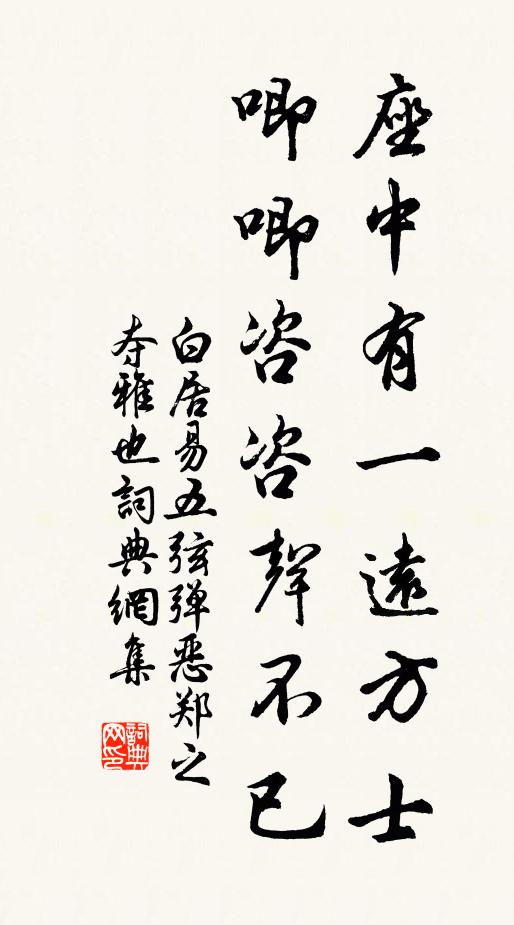 座中有一遠方士
唧唧咨咨聲不已
白居易五弦弹恶郑之
夺雅也詞典網集
詞典
网印